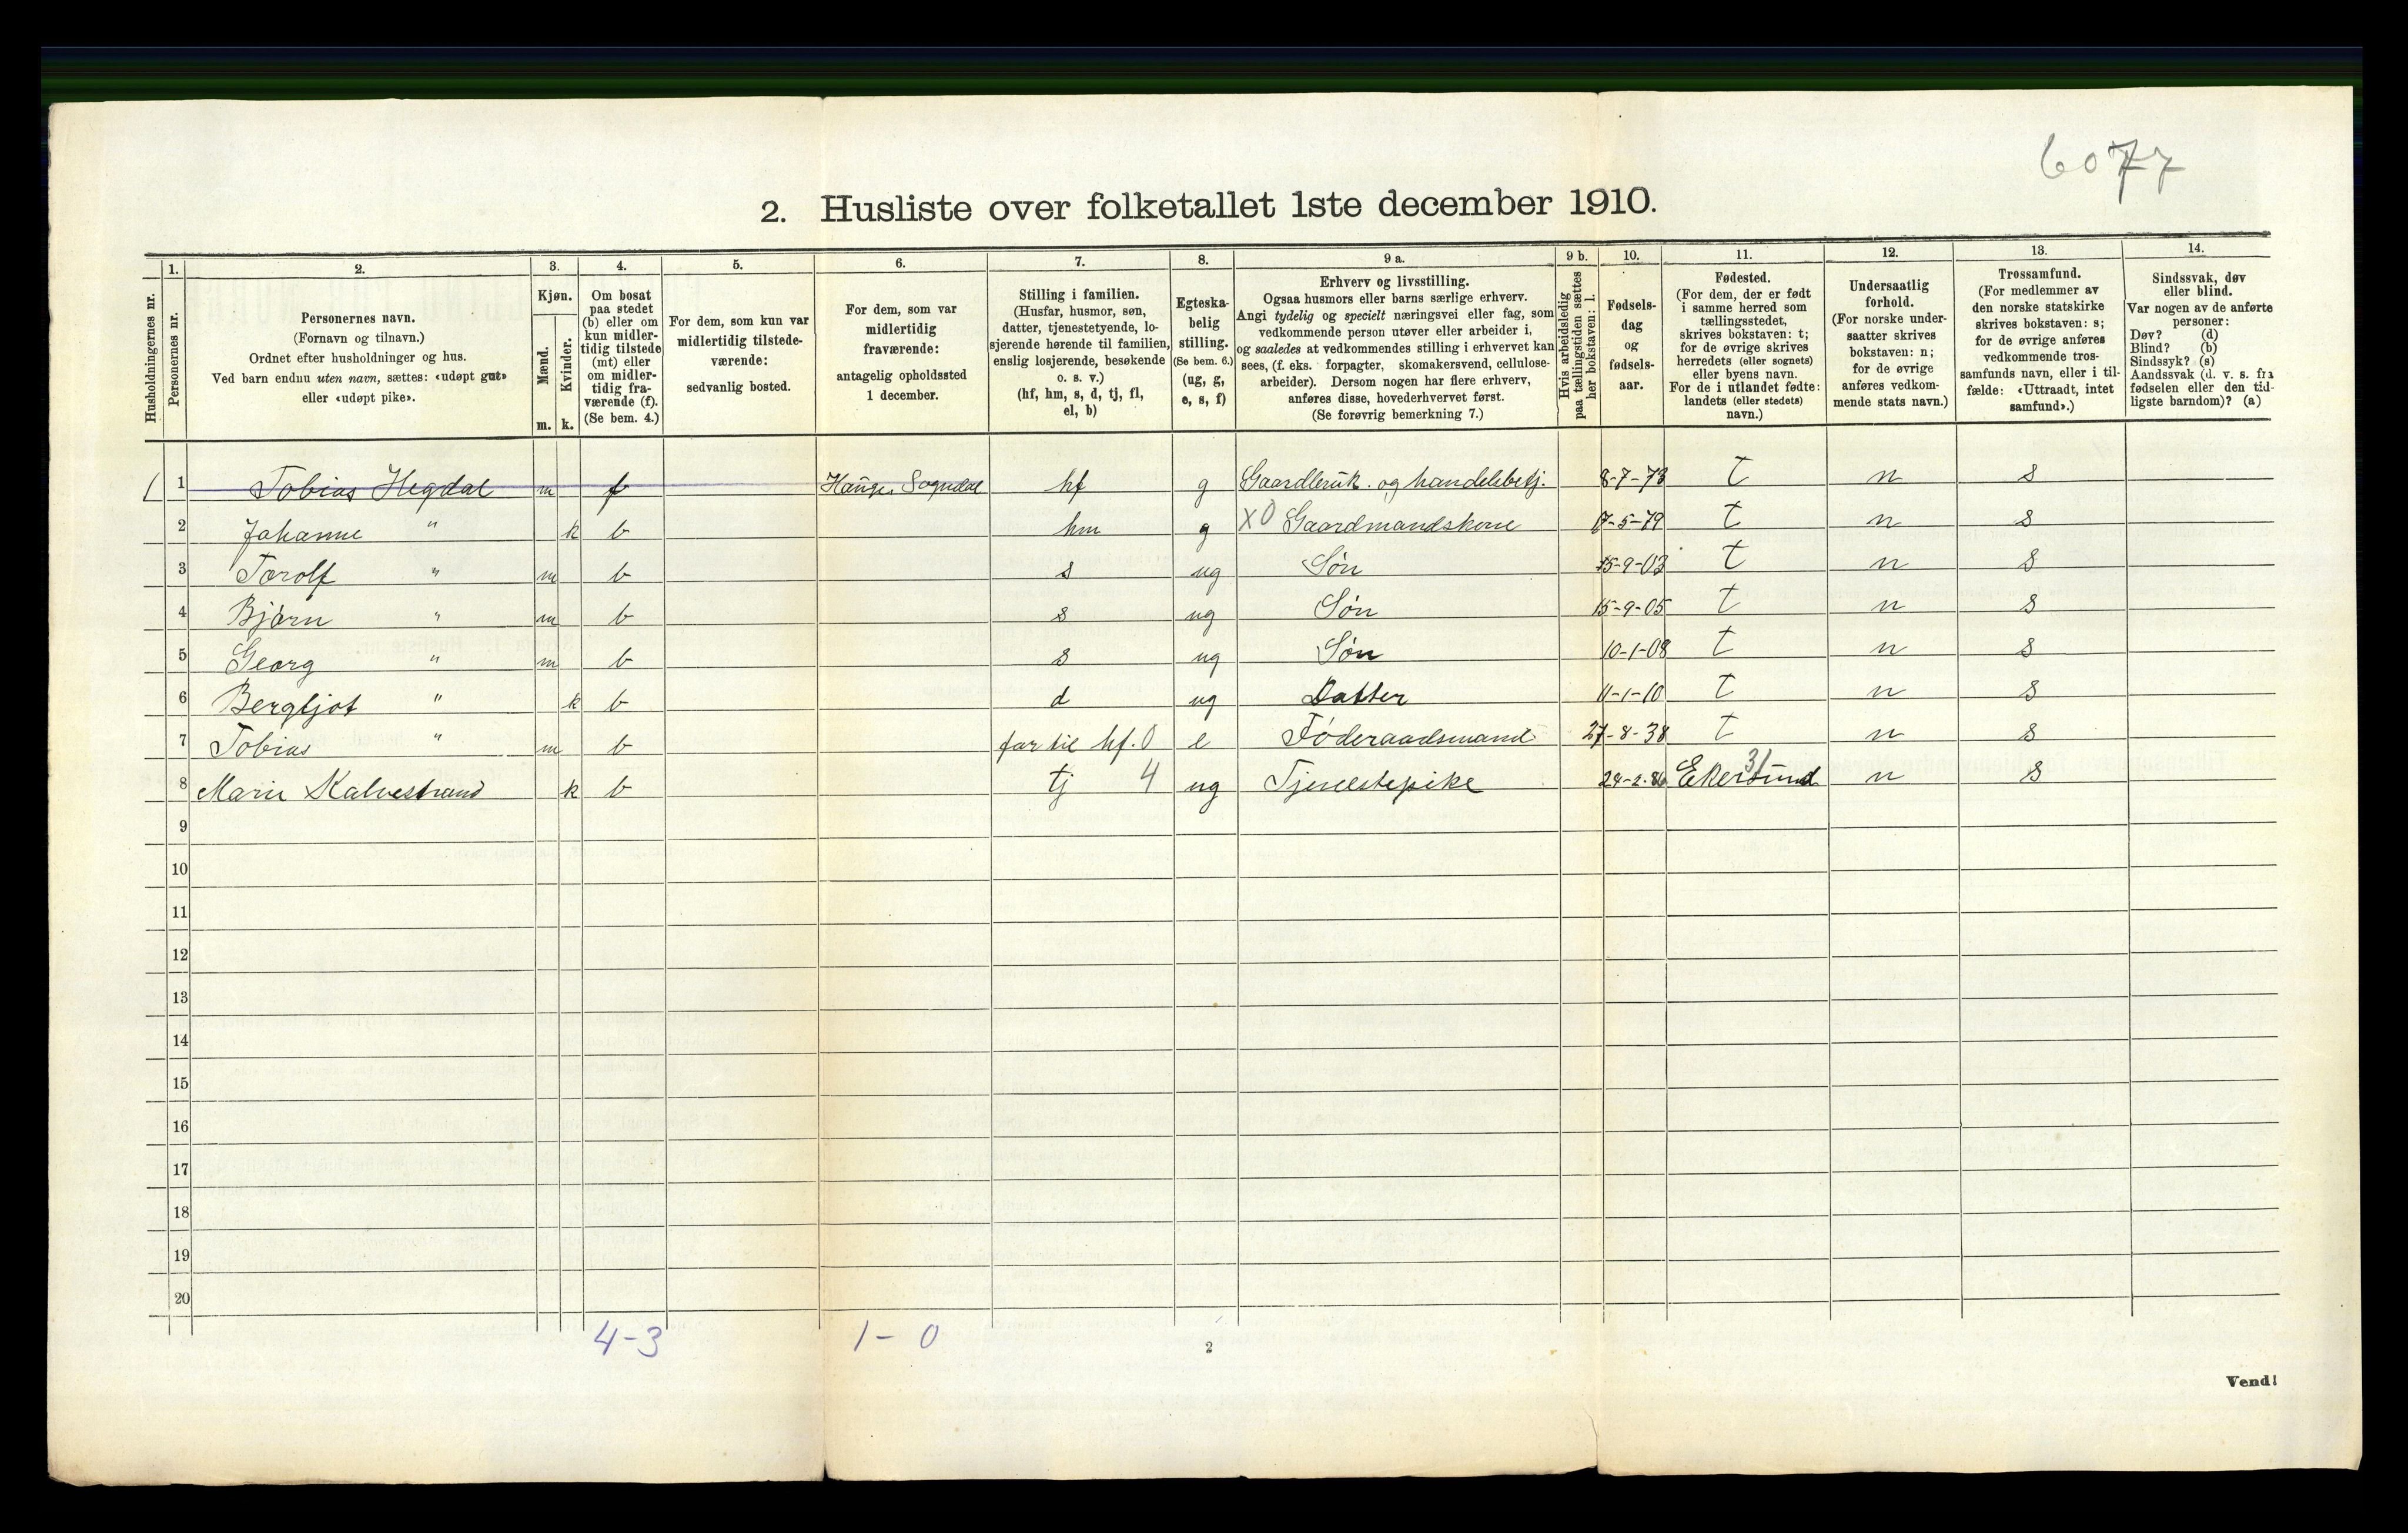 6077
2. Husliste over folketallet 1ste december 1910.
Husholdningernes nr.
1.
Personernes nr.
2.
Personernes navn.
(Fornavn og tilnavn.)
Ordnet efter husholdninger og hus.
Ved barn endnu uten navn, sættes: «udøpt gut»
eller «udøpt pike».
3.
Kjøn.
Mænd.
Kvinder.
m. k.
4.
Om bosat
paa stedet
(b) eller om
kun midler-
tidig tilstede
(mt) eller
om midler-
tidig fra-
værende (f).
(Se bem. 4.)
5.
For dem, som kun var
midlertidig tilstede-
værende:
sedvanlig bosted.
6.
For dem, som var
midlertidig
fraværende:
antagelig opholdssted
1 december.
7.
Stilling i familien.
(Husfar, husmor, søn,
datter, tjenestetyende, lo-
sjerende hørende til familien,
enslig losjerende, besøkende
o. s. v.)
(hf, hm, s, d, tj, fl,
el, b)
8.
Egteska-
belig
stilling.
(Se bem. 6.)
(ug, g,
e, s, f)
9 a.
Erhverv og livsstilling.
Ogsaa husmors eller barns særlige erhverv.
Angi tydelig og specielt næringsvei eller fag, som
vedkommende person utøver eller arbeider i,
og saaledes at vedkommendes stilling i erhvervet kan
sees, (f. eks. forpagter, skomakersvend, cellulose-
arbeider). Dersom nogen har flere erhverv,
anføres disse, hovederhvervet først.
(Se forøvrig bemerkning 7.)
9 b.
Hvis arbeidsledig
paa tællingstiden sættes
her bokstaven: l.
10.
Fødsels-
dag
og
fødsels-
aar.
11.
Fødested.
(For dem, der er født
i samme herred som
tællingsstedet,
skrives bokstaven: t;
for de øvrige skrives
herredets (eller sognets)
eller byens navn.
For de i utlandet fødte:
landets (eller stedets)
navn.)
12.
Undersaatlig
forhold.
(For norske under-
saatter skrives
bokstaven: n;
for de øvrige
anføres vedkom-
mende stats navn.)
13.
Trossamfund.
(For medlemmer av
den norske statskirke
skrives bokstaven: s;
for de øvrige anføres
vedkommende tros-
samfunds navn, eller i til-
fælde: «Uttraadt, intet
samfund».)
14.
Sindssvak, døv
eller blind.
Var nogen av de anførte
personer:
Døv? (d)
Blind? (b)
Sindssyk? (s)
Aandssvak (d. v. s. fra
fødselen eller den tid-
ligste barndom)? (a)
1 1 Tobias Hegdal m f Hauge, Sogndal hf g Gaardbruk. og handelsbetj. 8-7-73 t n s
2 Johanne " k b hm g X0 Gaardmandskone 17-5-79 t n s
3 Torolf " m b s ug Søn 15-9-03 t n s
4 Bjørn " m b s ug Søn 15-9-05 t n s
5 Georg " m b s ug Søn 10-1-08 t n s
6 Bergljot " k b d ug Datter 11-1-10 t n s
7 Tobias " m b far til hf. 0 e Føderaadsmand 27-8-38 t n s
8 Marie Kalvestrand k b tj 4 ug Tjenestepike 24-2-86 Ekersund 31 n s
9
10
11
12
13
14
15
16
17
18
19
20
4-3 1-0
2
Vend!